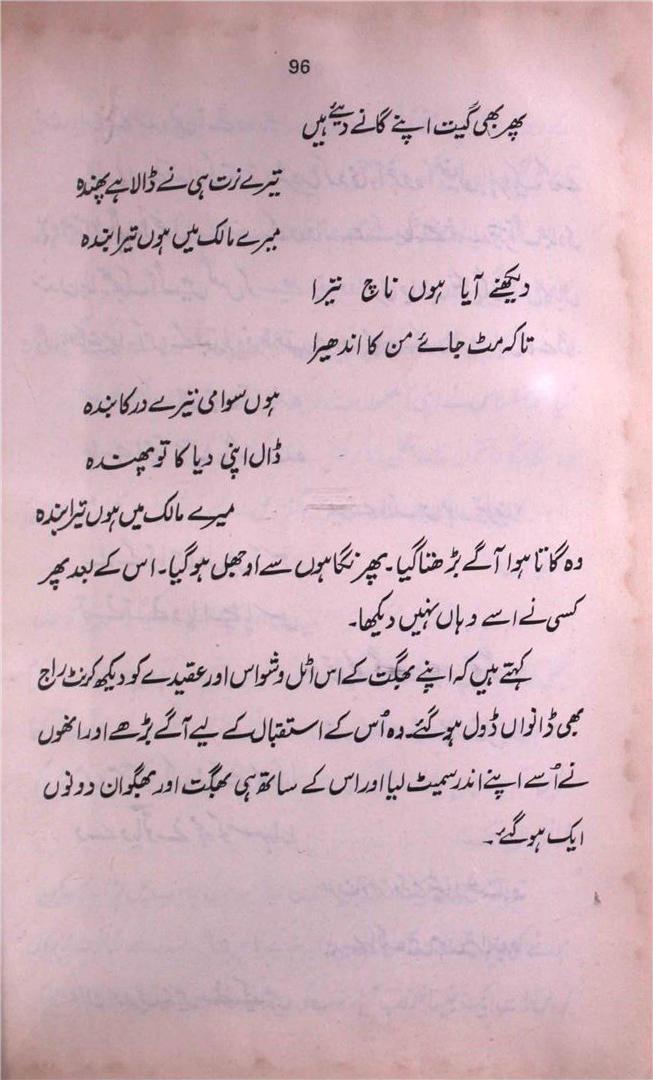 96
پھر بھی گیت اپنے گانے دیئے ہیں
تیرے نرت ہی نے ڈالا ہے پھندہ
میرے مالک میں ہوں تیرا بندہ
دیکھنے آیا ہوں ناچ تیرا
تاکہ مٹ جائے من کا اندھیرا
ہوں سوامی تیرے در کا بندہ
ڈال اپنی دیا کا تو پھندہ
میرے مالک میں ہوں تیرا بندہ
وہ گاتا ہوا آگے بڑھتا گیا۔ پھر نگاہوں سے اوجھل ہو گیا۔ اس کے بعد پھر
کسی نے اسے وہاں نہیں دیکھا۔
کہتے ہیں کہ اپنے بھگت کے اس اٹل وشواس اور عقیدے کو دیکھ کر نٹ راج
بھی ڈانواں ڈول ہو گئے۔ وہ اُس کے استقبال کے لیے آگے بڑھے اور انھوں
نے اُسے اپنے اندر سمیٹ لیا اور اس کے ساتھ ہی بھگت اور بھگوان دونوں
ایک ہو گئے۔